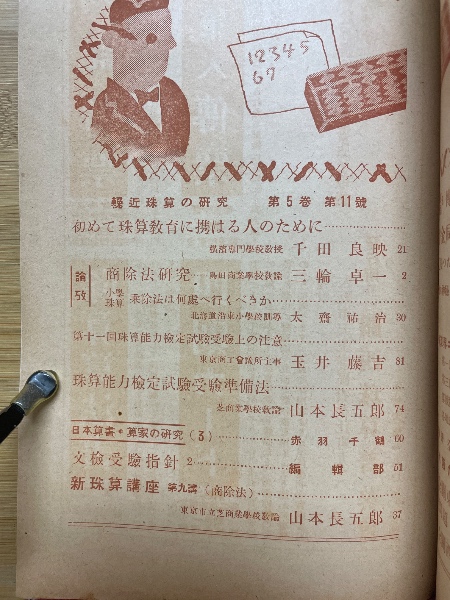 12345
67
輕近珠算の研究 第5巻 第11號
初めて珠算教育に携はる人のために
橫濱專門學校教授 千田良映 21
論攷
商除法研究 鳥田商業學校教諭 三輪卓一 2
小學珠算 乘除法は何處へ行くべきか
北海道沿東小學校訓導 太齋祐治 30
第十一回珠算能力檢定試驗受驗上の注意
東京商工會議所主事 玉井藤吉 81
珠算能力檢定試驗受驗準備法
芝商業學校教諭 山本長五郎 74
日本算書・算家の研究 (3) 赤羽千鶴 60
文檢受驗指針 2 編輯部 51
新珠算講座 第九講 (商除法)
東京市立芝商業學校教諭 山本長五郎 37